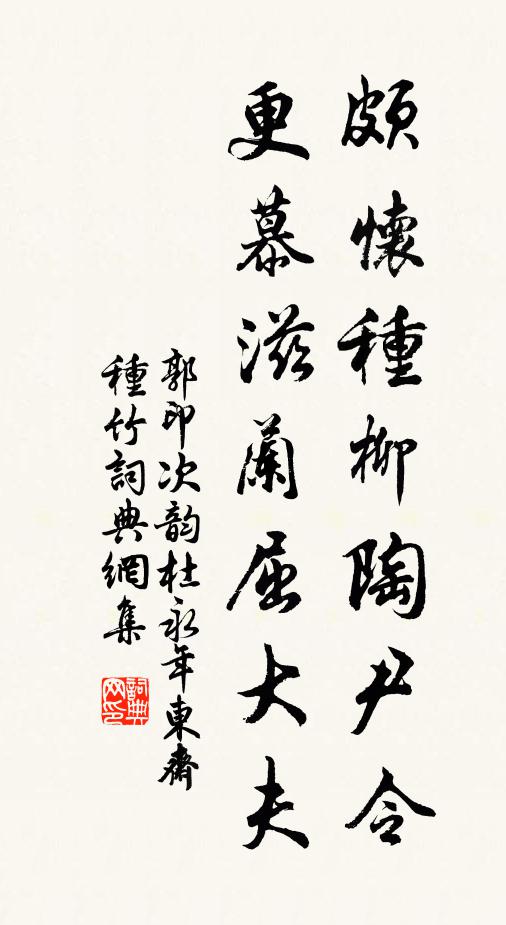 頗懷種柳陶尹令
更慕滋蘭屈大夫
郭印次韵杜永年東齋
種竹詞典網集
詞典
网印